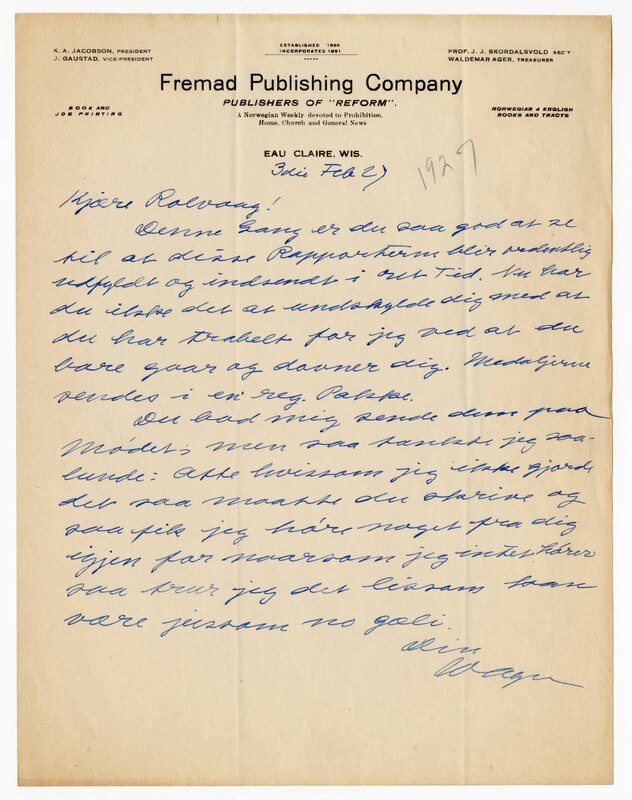 K. A. JACOBSON, PRESIDENT
J. GAUSTAD, VICE-PRESIDENT
ESTABLISHED 1886
INCORPORATED 1891
PROF. J. J. SKORDALSVOLD SEC'Y
WALDEMAR AGER, TREASURER
Fremad Publishing Company
PUBLISHERS OF "REFORM".
BOOK AND
JOB PRINTING
A Norwegian Weekly devoted to Prohibition,
Home, Church and General News
NORWEGIAN & ENGLISH
BOOKS AND TRACTS
EAU CLAIRE, WIS.
3die Feb 27
1927
Kjære Rolvaag!
Denne Gang er du saa god at se
til at disse Rapporterne blir ordentlig
udfyldt og indsendt i ret Tid. Nu har
du ikke det at undskylde dig med at
du har travelt for jeg ved at du
bare gaar og dovner dig. Medaljerne
sendes i en reg. Pakke.
Du bad mig sende dem paa
Mødet; men saa tænkte jeg saa-
lunde: Atte hvissom jeg ikke gjorde
det saa maatte du skrive og
saa fik jeg høre noget fra dig
igjen for naarsom jeg intet hører
saa trur jeg det lissom kan
være jussom no gæli.
Din
WAger